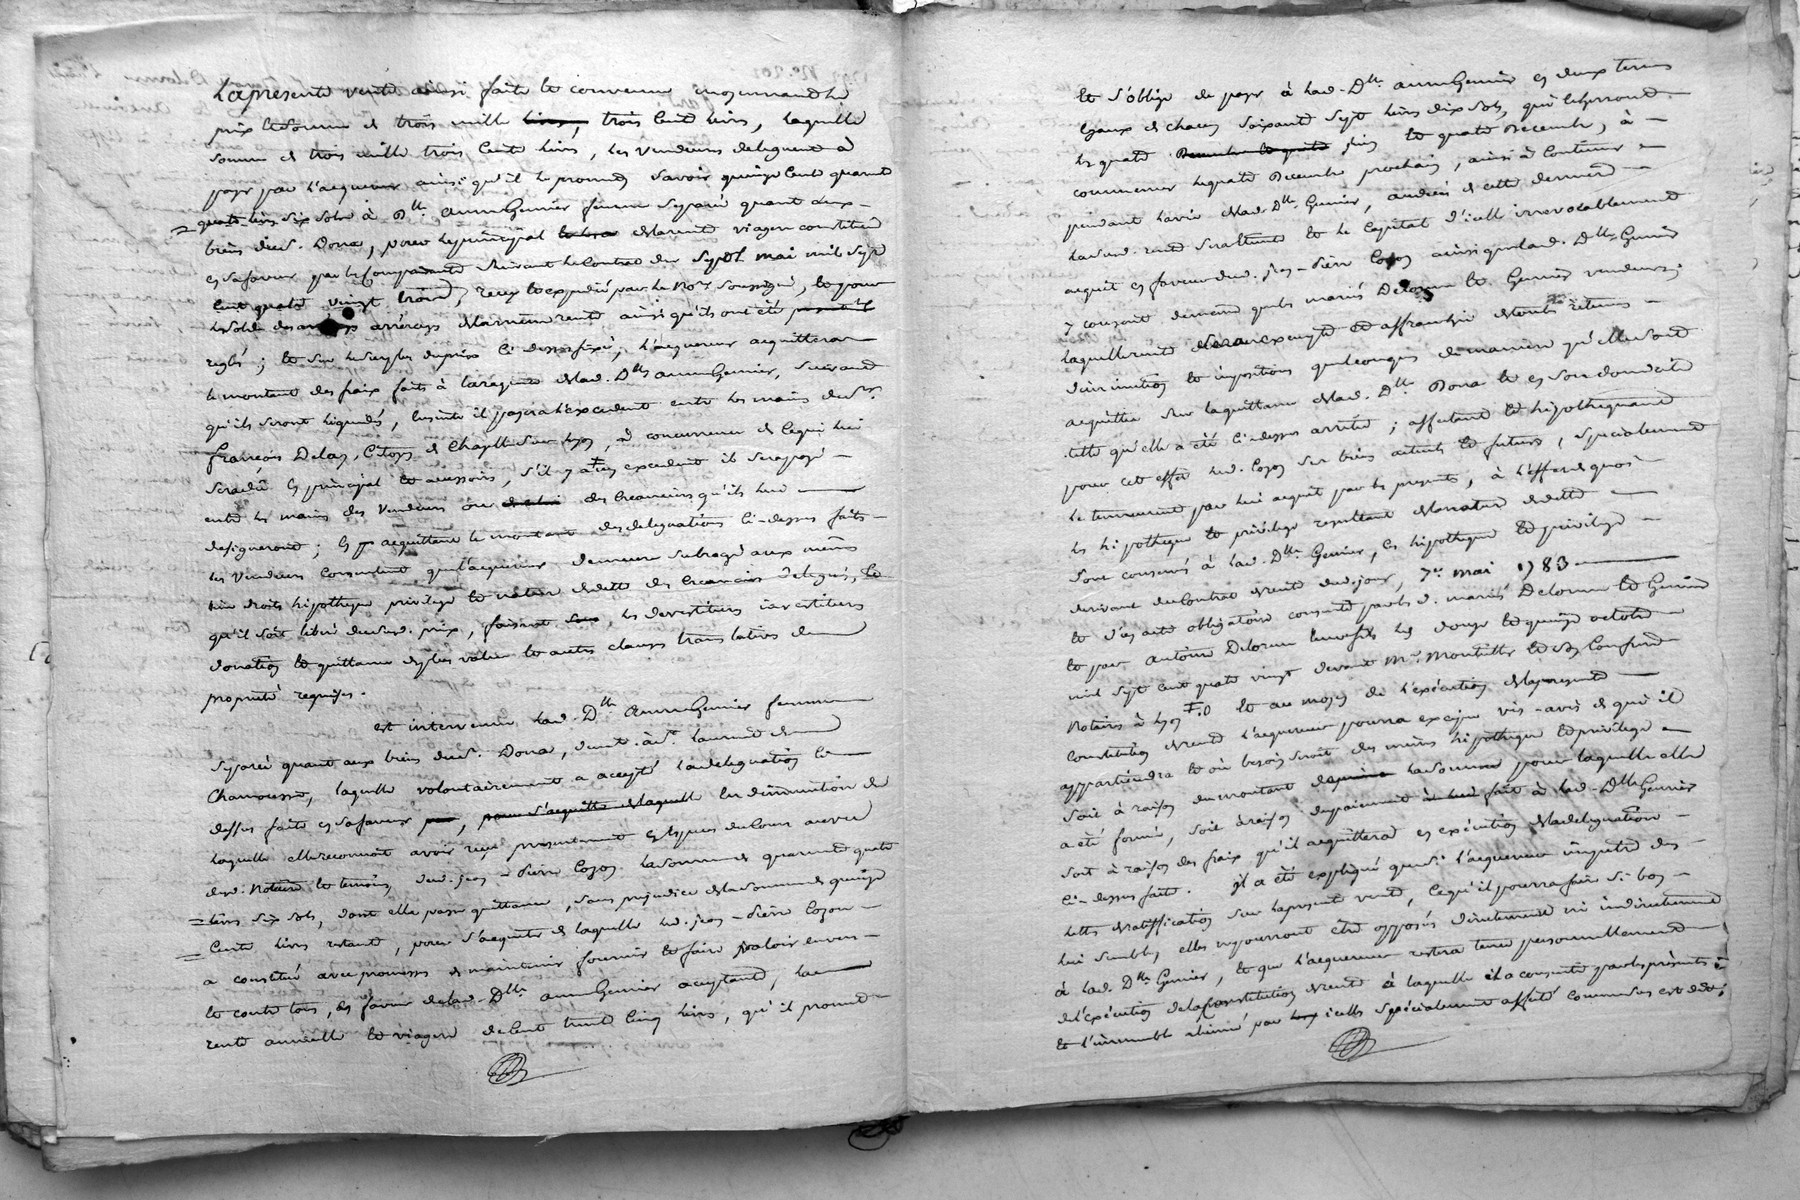 La presente vente ainsi faite et convenue moyennant le
prix et somme de trois mille livres, trois cent livres, laquelle
somme de trois mille trois cents livres, les vendeurs deleguent à
payer par l'acquereur ainsi qu'il le promet savoir quinze cent quarante
quatre livres six sols à Dlle anne Genier femme separée quant aux
biens du sr. Dona, pour le principal de la rente viagere constituée
en sa faveur par les comparants suivant le contrat du sept mai mil sept
cent quatre vingt trois, reçu et expedié par le Nore soussigné, et pour
le solde des arrérages de la meme rente ainsi qu'ils ont été
reglés; et sur le surplus du prix ci dessus fixé, l'acquereur acquittera
le montant des fraix faits à la requete de lad. Dlle anne Genier, suivant
qu'ils seront liquidés, ensuite il payera l'excedent entre les mains du sr.
françois Delay, citoyen de Chapelle sur lyon, à concurrence de ce qui lui
sera dû en principal et accessoires, s'il y a excedent il sera payé
entre les mains des vendeurs ou des creanciers qu'ils lui
designeront; en acquittant le montant des delegations ci-dessus faites
les vendeurs consentent que l'acquereur demeure subrogé aux mêmes
droits hipotheque privilege et nature de dette des creanciers delegués, et
qu'il soit liberé du susd. prix, faisant les devestitures investitures
donation et quittance de plus value et autres clauses translatives de
proprieté requises.
est intervenue lad. Dlle anne Genier femme
separée quant aux biens du sr. Dona,
Chamousset, laquelle volontairement a accepté la delegation ci
dessus faite en sa faveur, pour s'acquitter de laquelle en diminution de
laquelle elle reconnoit avoir reçu presentement en especes du cours au vu
dud. Notaire et temoins, dud. jean-Pierre Cozon la somme de quarante quatre
livres six sols, dont elle passe quittance, sans prejudice de la somme de quinze
cents livres restante, pour s'acquitter de laquelle led. jean-Pierre Cozon
a constitué avec promesses de maintenir fournir et faire valoir envers
et contre tous, en faveur de lad. Dlle anne Genier acceptante, la
rente annuelle et viagere de cent trente cinq livres, qu'il promet
et s'oblige de payer à lad. Dlle anne Genier en deux termes
egaux de chacun soixante sept livres dix sols, qui echerront
les quatre juin et quatre Decembre, à
commencer le quatre Decembre prochain, ainsi à continuer
pendant la vie de lad. Dlle Genier, au deces de cette derniere
lad. rente sera eteinte et le capital d'icelle irrevocablement
acquit en faveur dud. jean-Pierre Cozon ainsi que lad. Dlle Genier
y consent de meme que les mariés Delorme et Genier vendeurs;
laquelle rente sera exempte et affranchie de toutes retenues
diminution et impositions quelconques de maniere qu'elle soit
acquittée sur la quittance de lad. Dlle Dona et en son domicile
telle qu'elle a été ci-dessus arretée; affectant et hipothequant
pour cet effet led. Cozon ses biens actuels et futurs, specialement
le tennement par lui acquit par les presentes, à l'effet de quoi
les hipotheque et privilege resultant de la nature de dette
sont conservés à lad. Dlle Genier, les hipotheque et privilege
derivant du contrat de rente dud. jour, 7e. mai 1783
et d'un acte obligatoire consenti par les d. mariés Delorme et Genier
et par antoine Delorme leur fils les douze et quinze octobre
mil sept cent quatre vingt devant Me. Montellier et son confrere
Notaires à lyon et au moyen de l'exécution de la presente
constitution de rente l'acquereur pourra exciper vis-avis de qui il
appartiendra et où besoin seroit des memes hipotheque et privilege
soit à raison du montant de la somme pour laquelle elle
a été formée, soit à raison du paiement fait à lad. Dlle Genier
soit à raison des fraix qu'il acquittera en exécution de la delegation
ci-dessus faite. il a été expliqué que si l'acquereur impetre des
lettres de ratiffication sur la presente vente, ce qu'il pourra faire si bon
lui semble, elles ne pourront etre opposées directement ni indirectement
à lad. Dlle Genier, et que l'acquereur restera tenu personnellement
de l'exécution de la constitution de rente à laquelle il a consenti par les presentes
et l'immeuble aliené par icelles specialement affecté comme sus est dit;